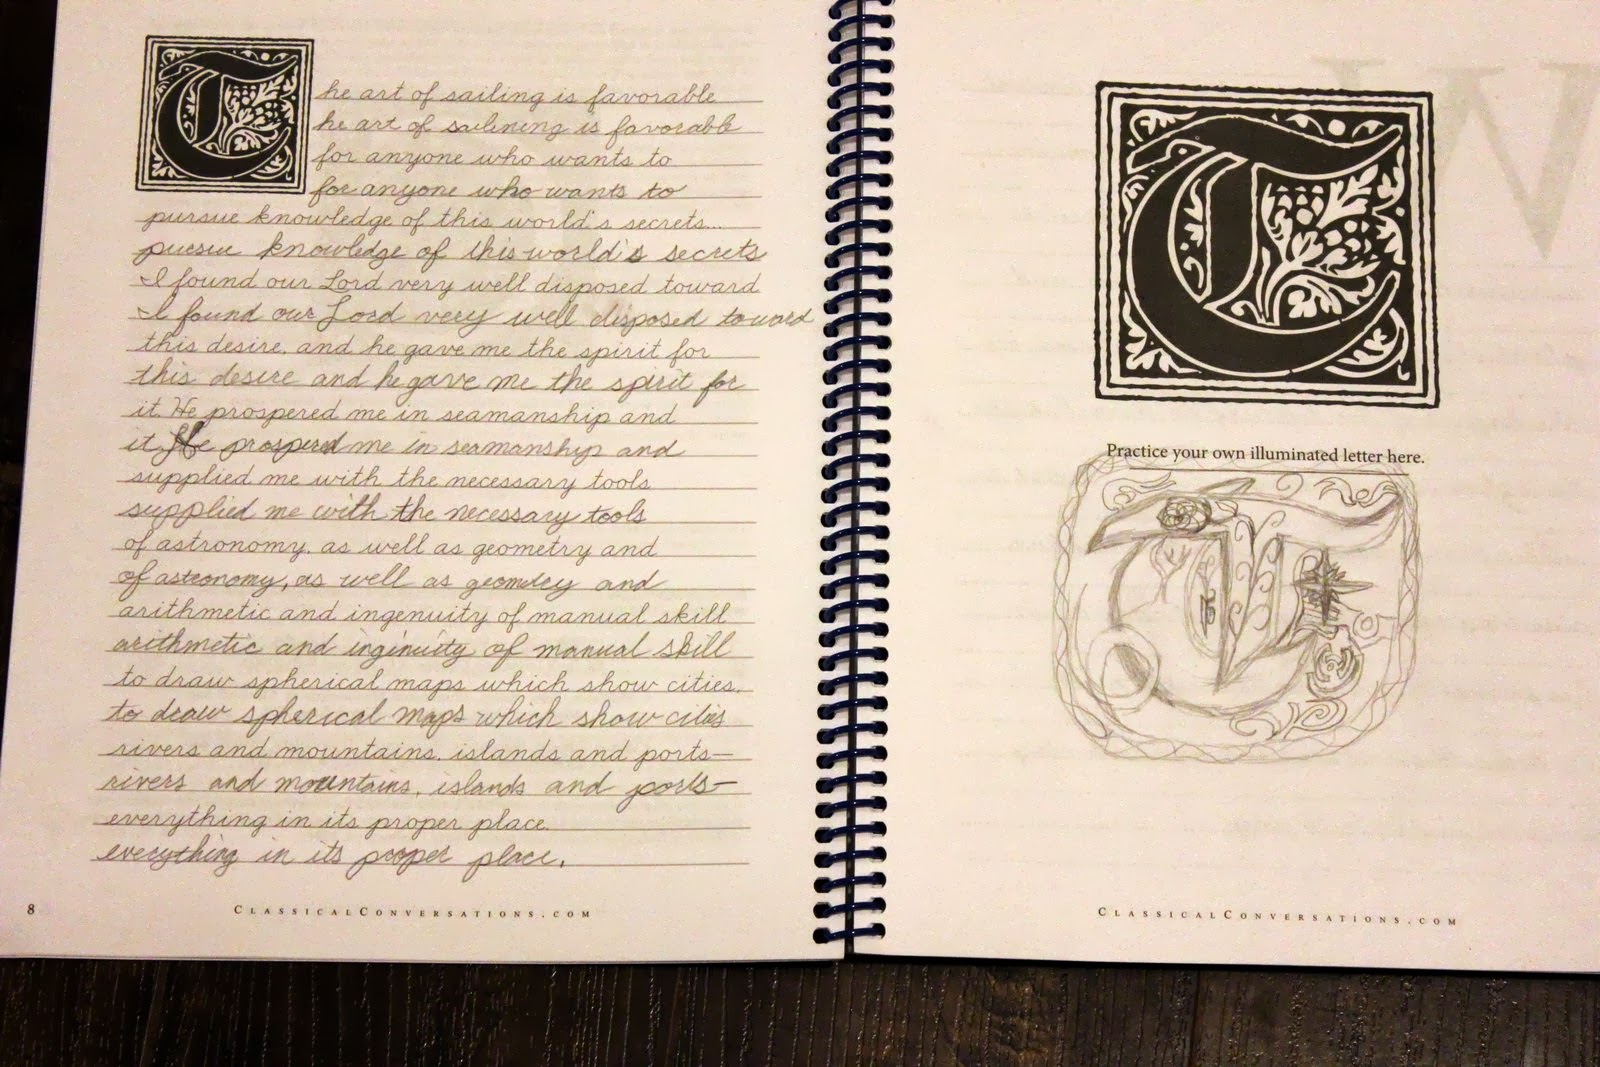 T he art of sailing is favorable
he art of sailining is favorable
for anyone who wants to
for anyone who wants to
pursue knowledge of this world's secrets...
pursue knowledge of this world's secrets
I found our Lord very well disposed toward
I found our Lord very well disposed toward
this desire, and he gave me the spirit for
this desire and he gave me the spirit for
it. He prospered me in seamanship and
it He prospered me in seamanship and
supplied me with the necessary tools
supplied me with the necessary tools
of astronomy, as well as geometry and
of astronomy, as well as geometry and
arithmetic and ingenuity of manual skill
arithmetic and inginuity of manual skill
to draw spherical maps which show cities,
to draw spherical maps which show cities
rivers and mountains, islands and ports—
rivers and mountains, islands and ports—
everything in its proper place.
everything in its proper place.
8
CLASSICALCONVERSATIONS.COM
T
Practice your own illuminated letter here.
T
CLASSICALCONVERSATIONS.COM